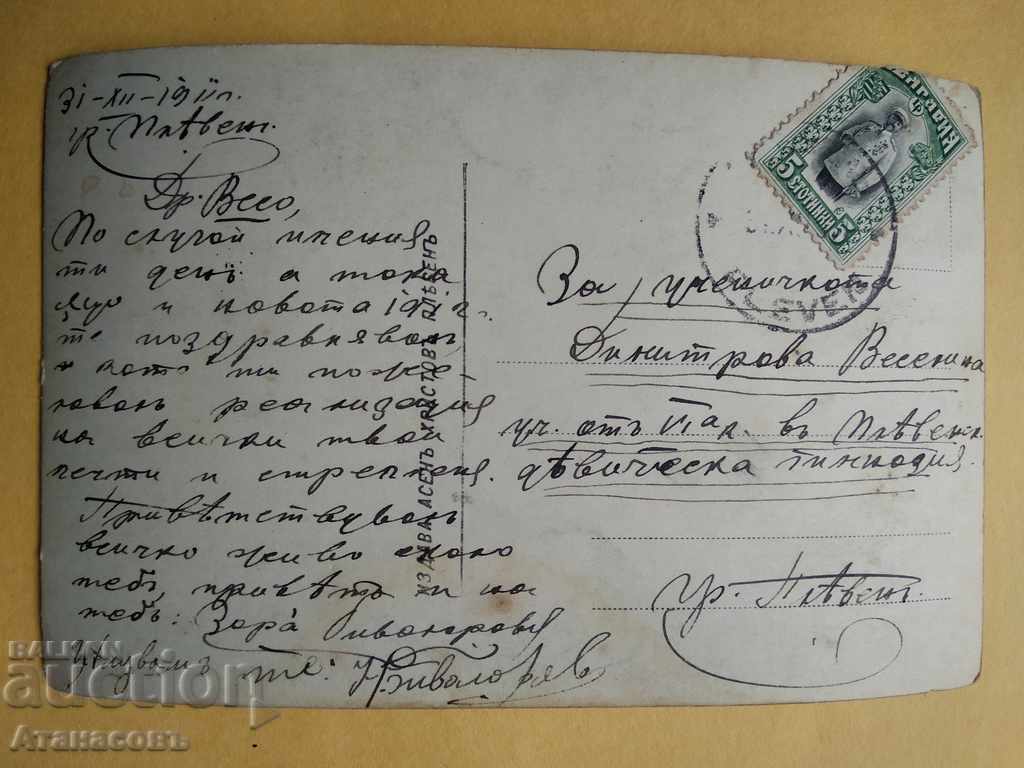 31-XII-1911 г.
гр. Плѣвенъ.
Др. Весо,
По случай имения
ти денъ а тока
и новата 1912 г.
те поздравявамъ,
като ти поже
лавамъ реализация
на всички твои
мечти и стремления.
Привѣтствувамъ
всичко живо около
тебъ, привѣтъ и на
тебъ: Зора
Целувамъ те:
ИЗДАВА АСЕНЪ ХРИСТОВЪ ПЛѢВЕНЪ
БЪЛГАРИЯ
5 СТОТИНКИ 5
PLEVEN
За ученичката
Димитрова Веселина
уч. отъ VI а кл. въ Плѣвенск.
дѣвическа гимназия.
гр. Плѣвенъ.
BALKAN
auction
Атанасовъ